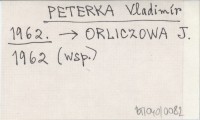 PETERKA Vladimír
1962. → ORLICZOWA J.
1962 (wsp.)